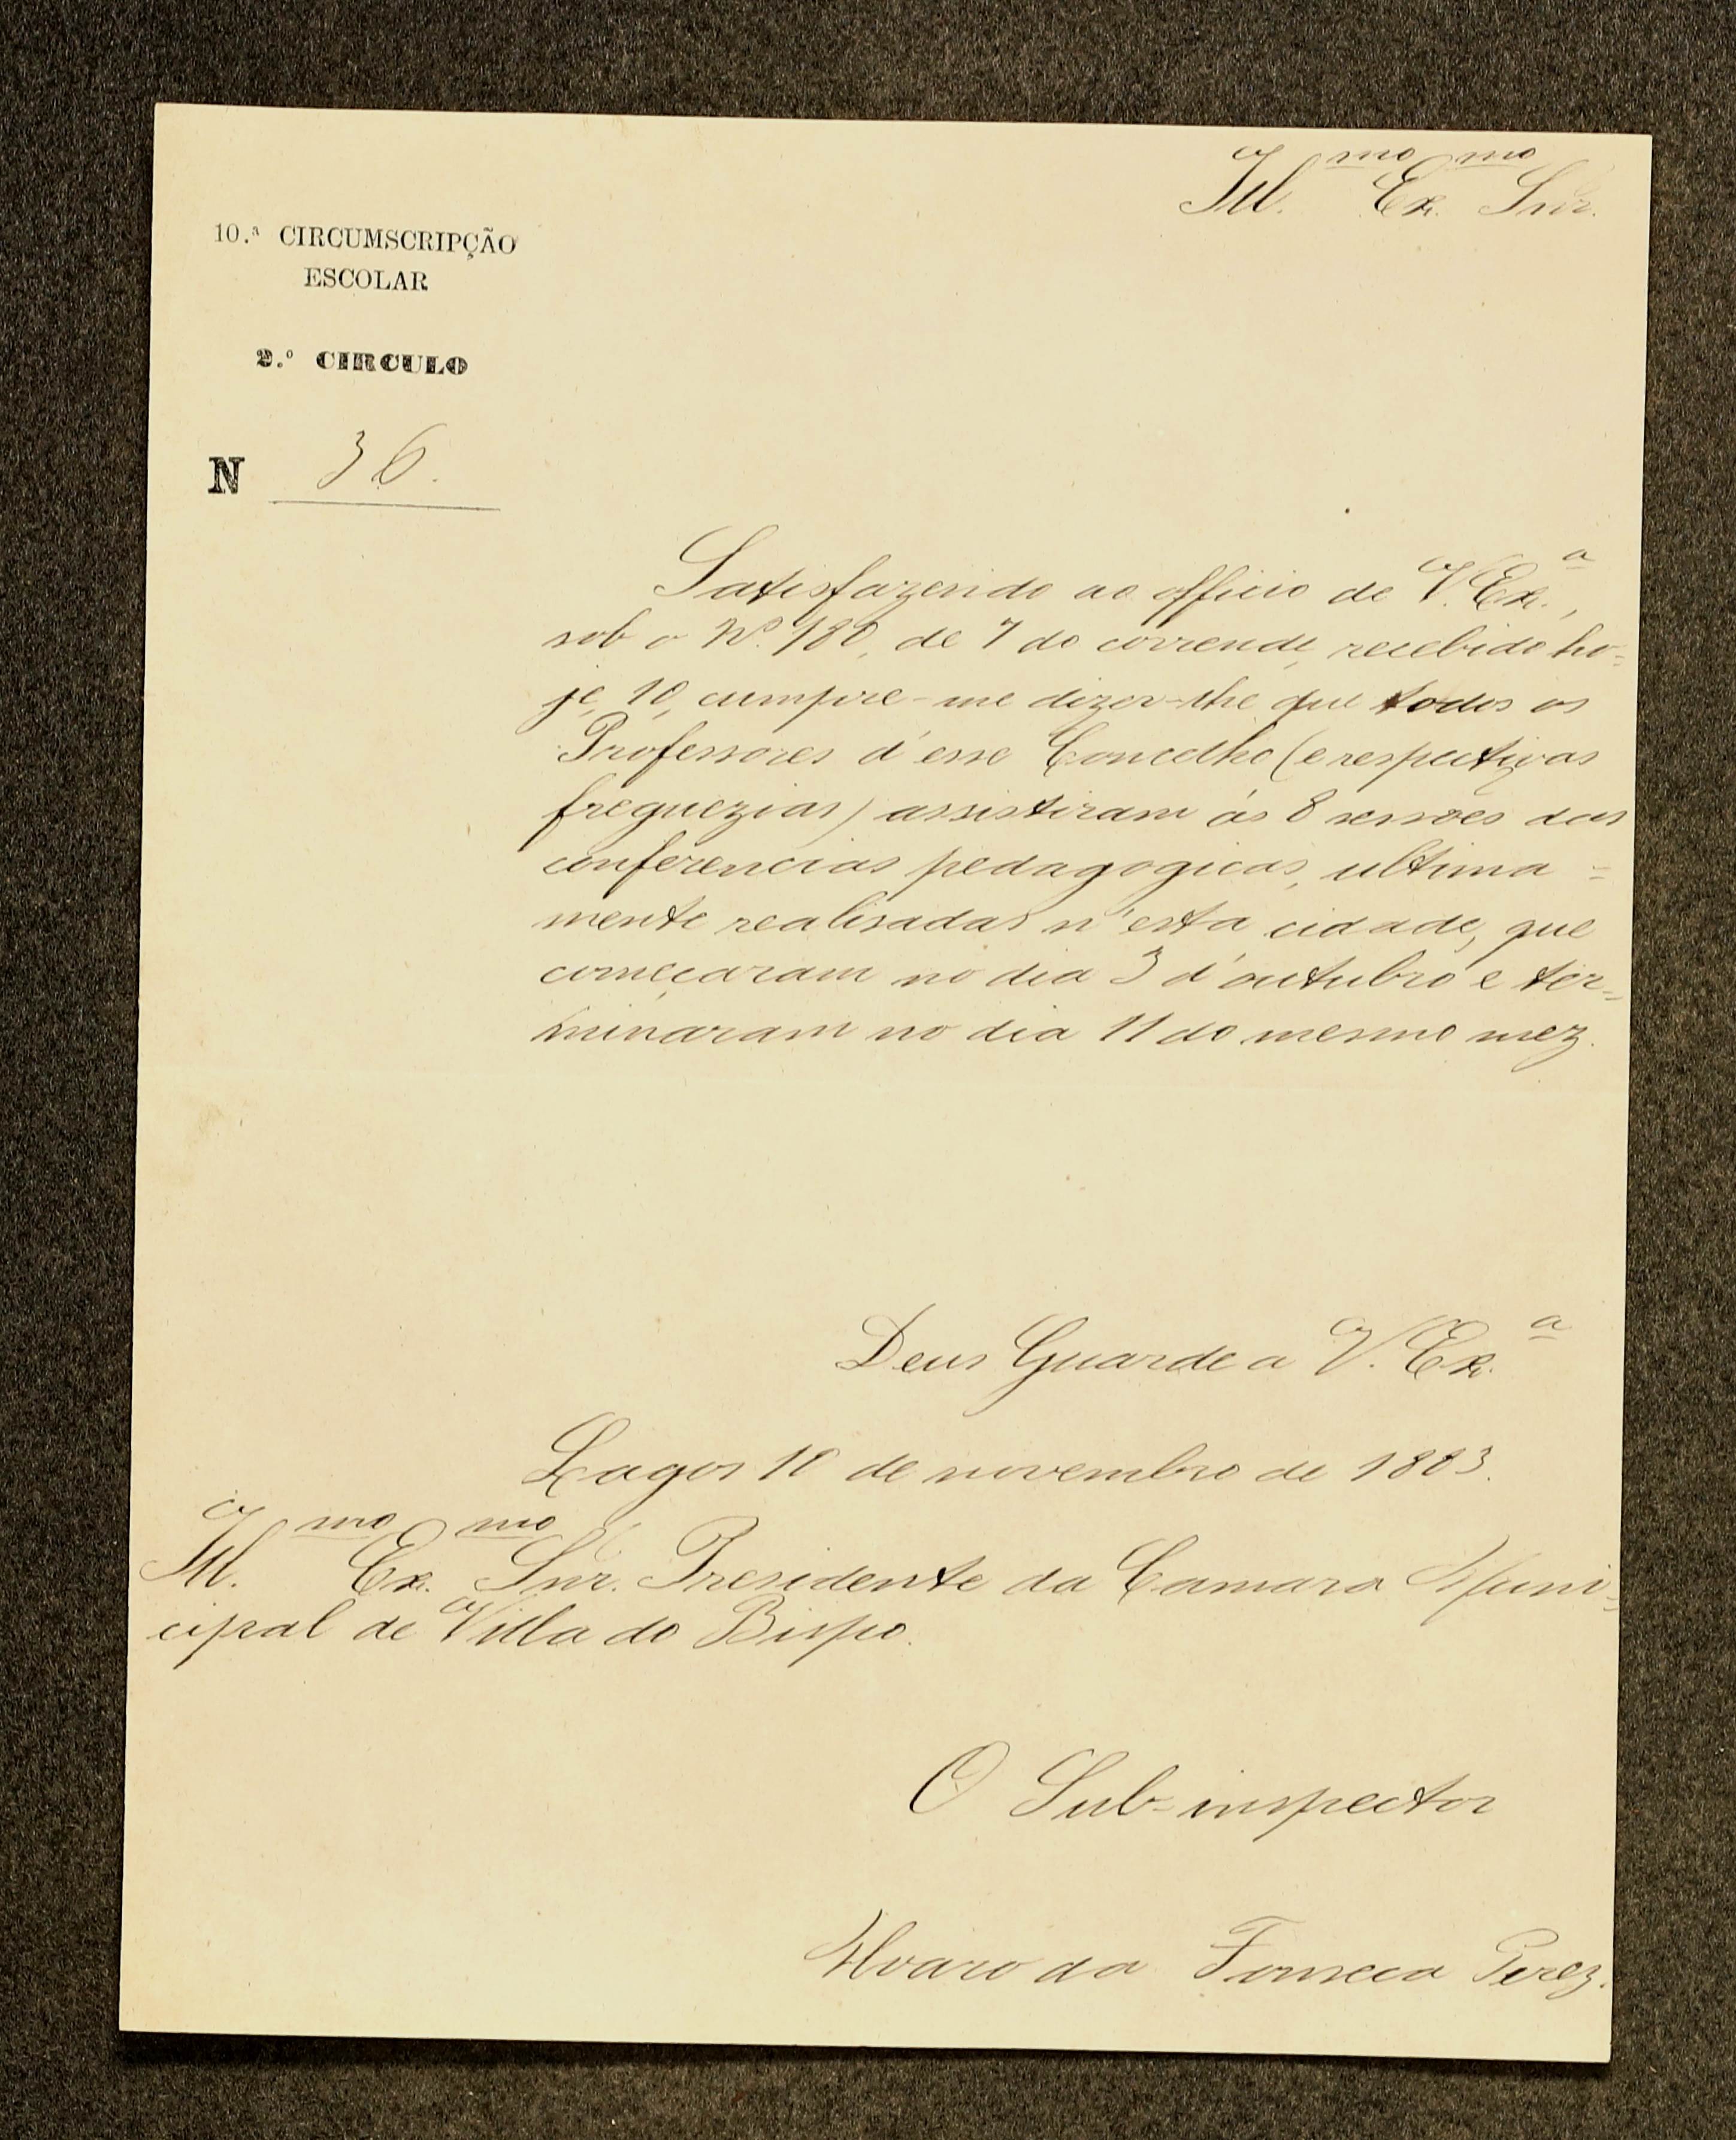 Ill.mo Ex.mo Snr.
10.ª CIRCUMSCRIPÇÃO
ESCOLAR
2.º CIRCULO
N 36.
Satisfazendo ao officio de V. Ex.ª,
sob o Nº. 180, de 7 do corrente, recebido ho-
je, 10, cumpre-me dizer-lhe que todos os
Professores d'esse Concelho (e respectivas
freguezias) assistiram ás 8 sessões das
conferencias pedagogicas, ultima=
mente realisadas n'esta cidade, que
começaram no dia 3 d'outubro e ter-
minaram no dia 11 do mesmo mez.
Deus Guarde a V. Ex.ª
Lagos 10 de novembro de 1883.
Ill.mo Ex.mo Snr. Presidente da Camara Muni-
cipal de Villa do Bispo.
O Sub-inspector
Alvaro da Fonseca Perez.